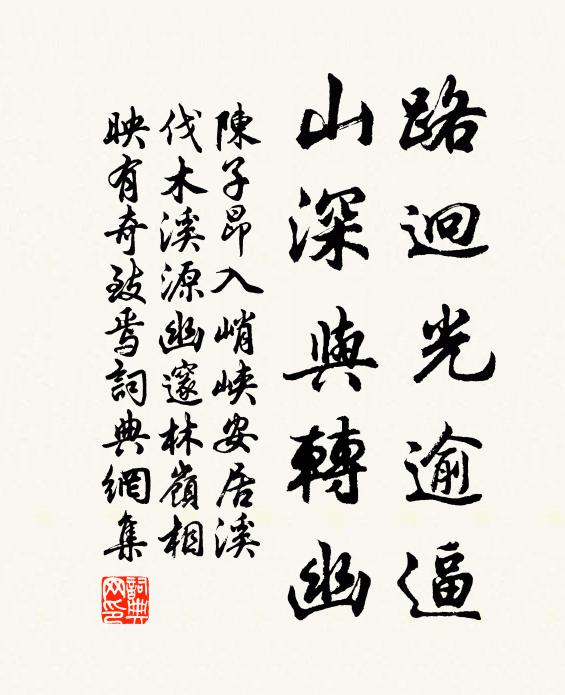 路迥光逾逼
山深興轉幽
陳子昂入峭峽安居溪
伐木溪源幽邃林嶺相
映有奇致焉詞典網集
詞典網印